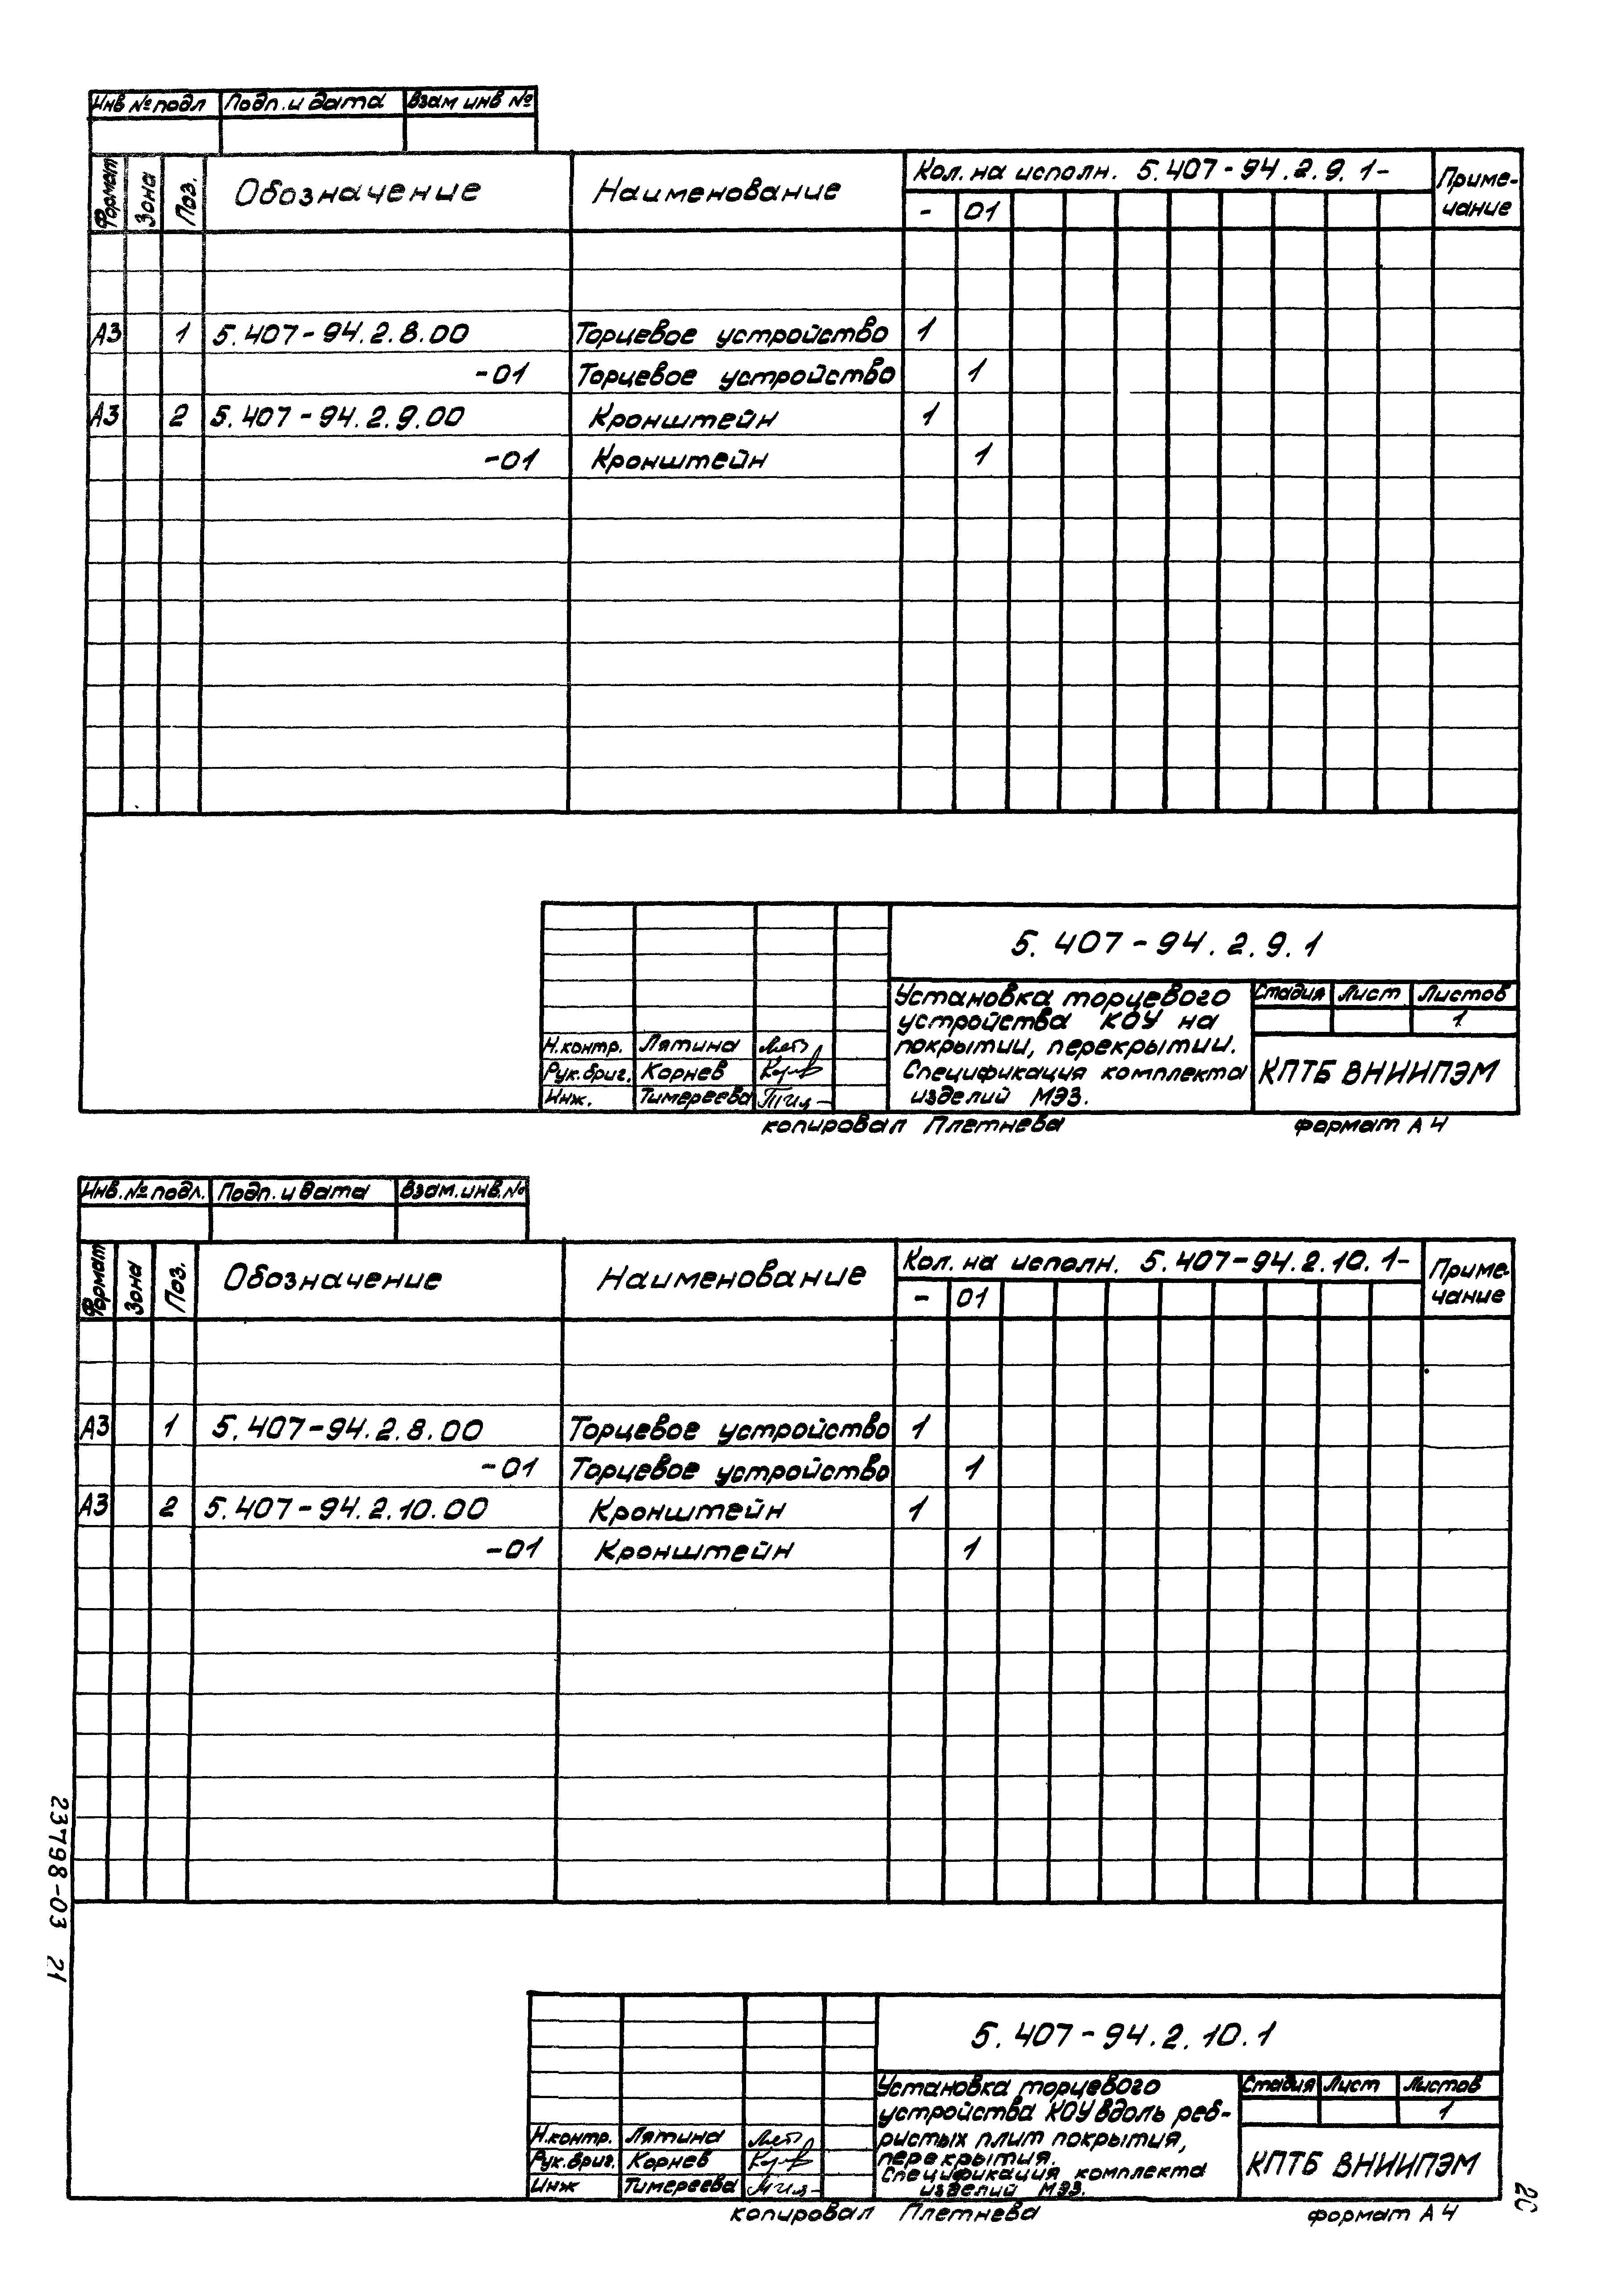 Инв № подл Подп. и дата Взам инв №
Формат Зона Поз. Обозначение Наименование Кол. на исполн. 5.407-94.2.9.1- Приме-
- 01 чание
А3 1 5.407-94.2.8.00 Торцевое устройство 1
-01 Торцевое устройство 1
А3 2 5.407-94.2.9.00 Кронштейн 1
-01 Кронштейн 1
5.407-94.2.9.1
Установка торцевого Стадия Лист Листов
устройства КОУ на 1
Н.контр. Лятина покрытии, перекрытии.
Рук.бриг. Корнев Спецификация комплекта КПТБ ВНИИПЭМ
Инж. Тимереева изделий МЭЗ.
копировал Плетнева формат А4
Инв. № подл. Подп. и дата Взам. инв. №
Формат Зона Поз. Обозначение Наименование Кол. на исполн. 5.407-94.2.10.1- Приме-
- 01 чание
А3 1 5.407-94.2.8.00 Торцевое устройство 1
-01 Торцевое устройство 1
А3 2 5.407-94.2.10.00 Кронштейн 1
-01 Кронштейн 1
23798-03 21
5.407-94.2.10.1
Установка торцевого Стадия Лист Листов
устройства КОУ вдоль реб- 1
Н.контр. Лятина ристых плит покрытия,
Рук.бриг. Корнев перекрытия. КПТБ ВНИИПЭМ
Спецификация комплекта
Инж Тимереева изделий МЭЗ.
копировал Плетнева формат А4
20